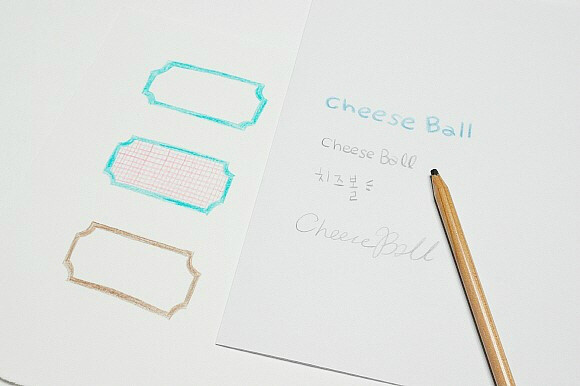 Cheese Ball
Cheese Ball
치즈볼
Cheese Ball